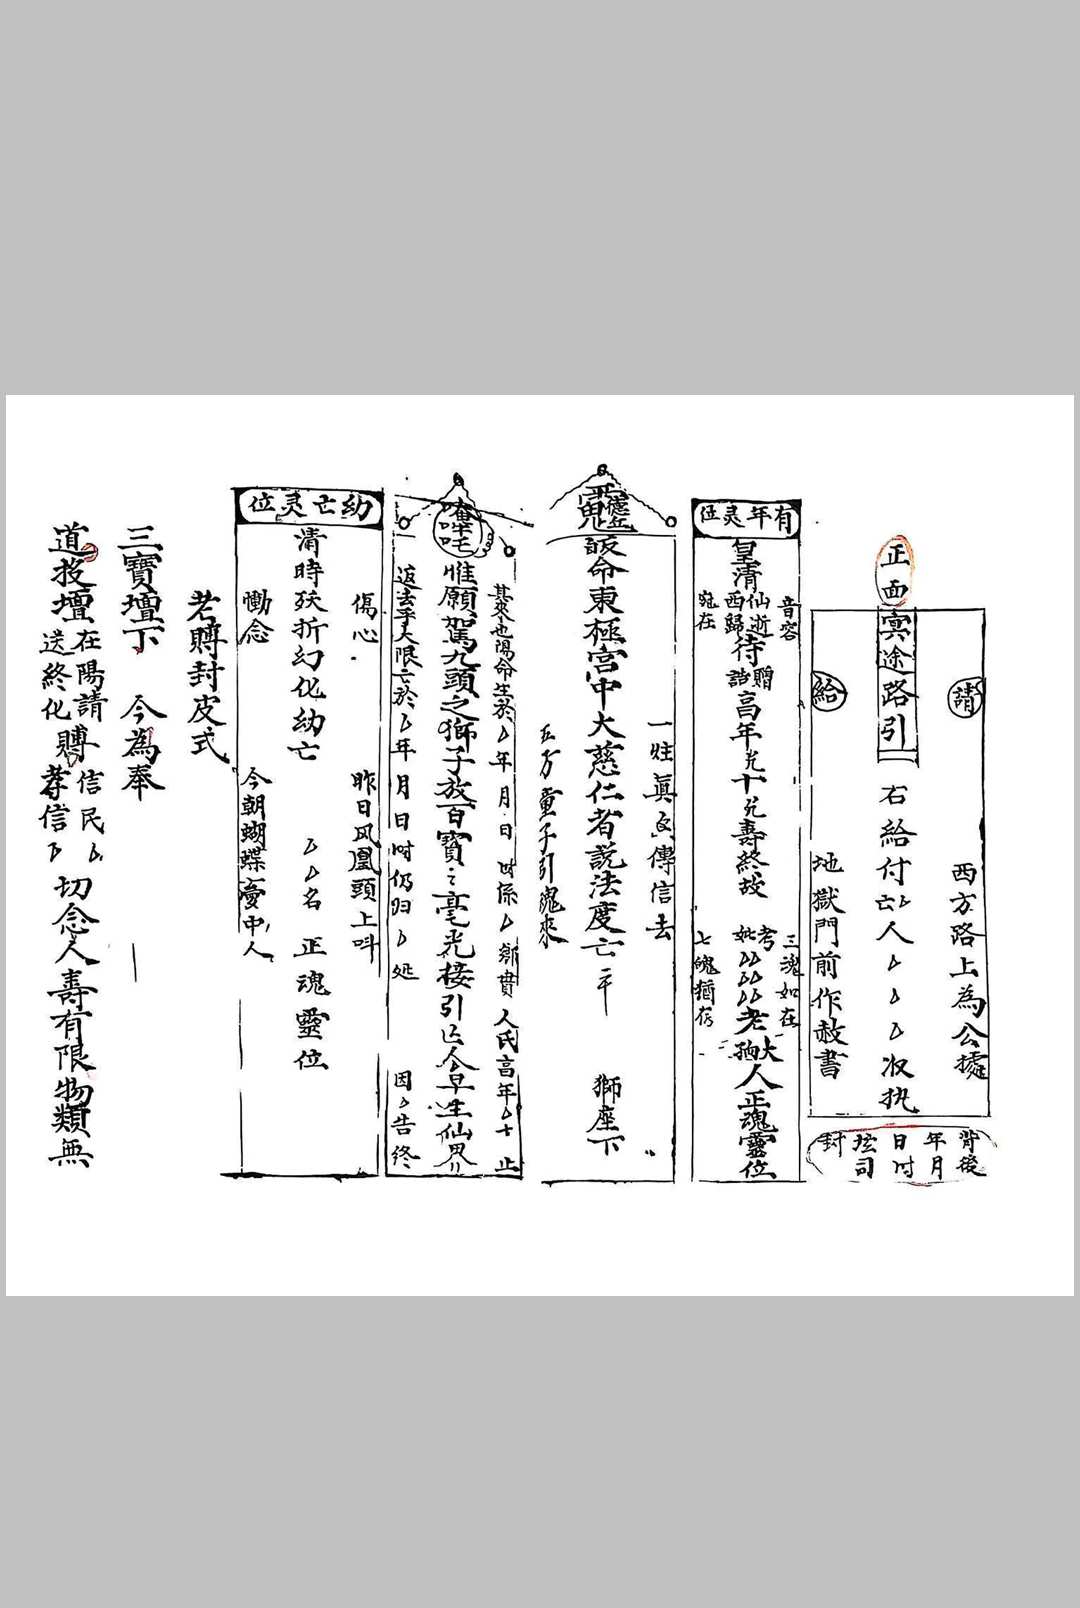 正面
冥途路引
請
西方路上為公據
右給付亡人 收执
給
地獄門前作赦書
背後
年月
日时
拡司
封
有年灵位
音容
宛在
皇清仙逝
西歸
待贈
誥
高年 十 壽終故
考
妣
老大
孺
人正魂靈位
三魂如在
七魄猶存
皈命東極宮中大慈仁者説法度亡 獅座下
一炷真香傳信去
五方童子引魂來
唵
吽吒
惟願駕九頭之獅子放百寶之毫光接引亡人早生仙界
其來也陽命生於 年月日时係 鄉貫人氏高年 十 止
返去乎大限亡於 年月日时仍归 处 因 告終
幼亡灵位
傷心
昨日凤凰頭上叫
清時殀折幻化幼亡 名正魂靈位
慟念
今朝蝴蝶夢中人
若賻封皮式
三寶壇下 今為奉
道投壇在陽請賻信民
送終化賻孝信
切念人壽有限物類無